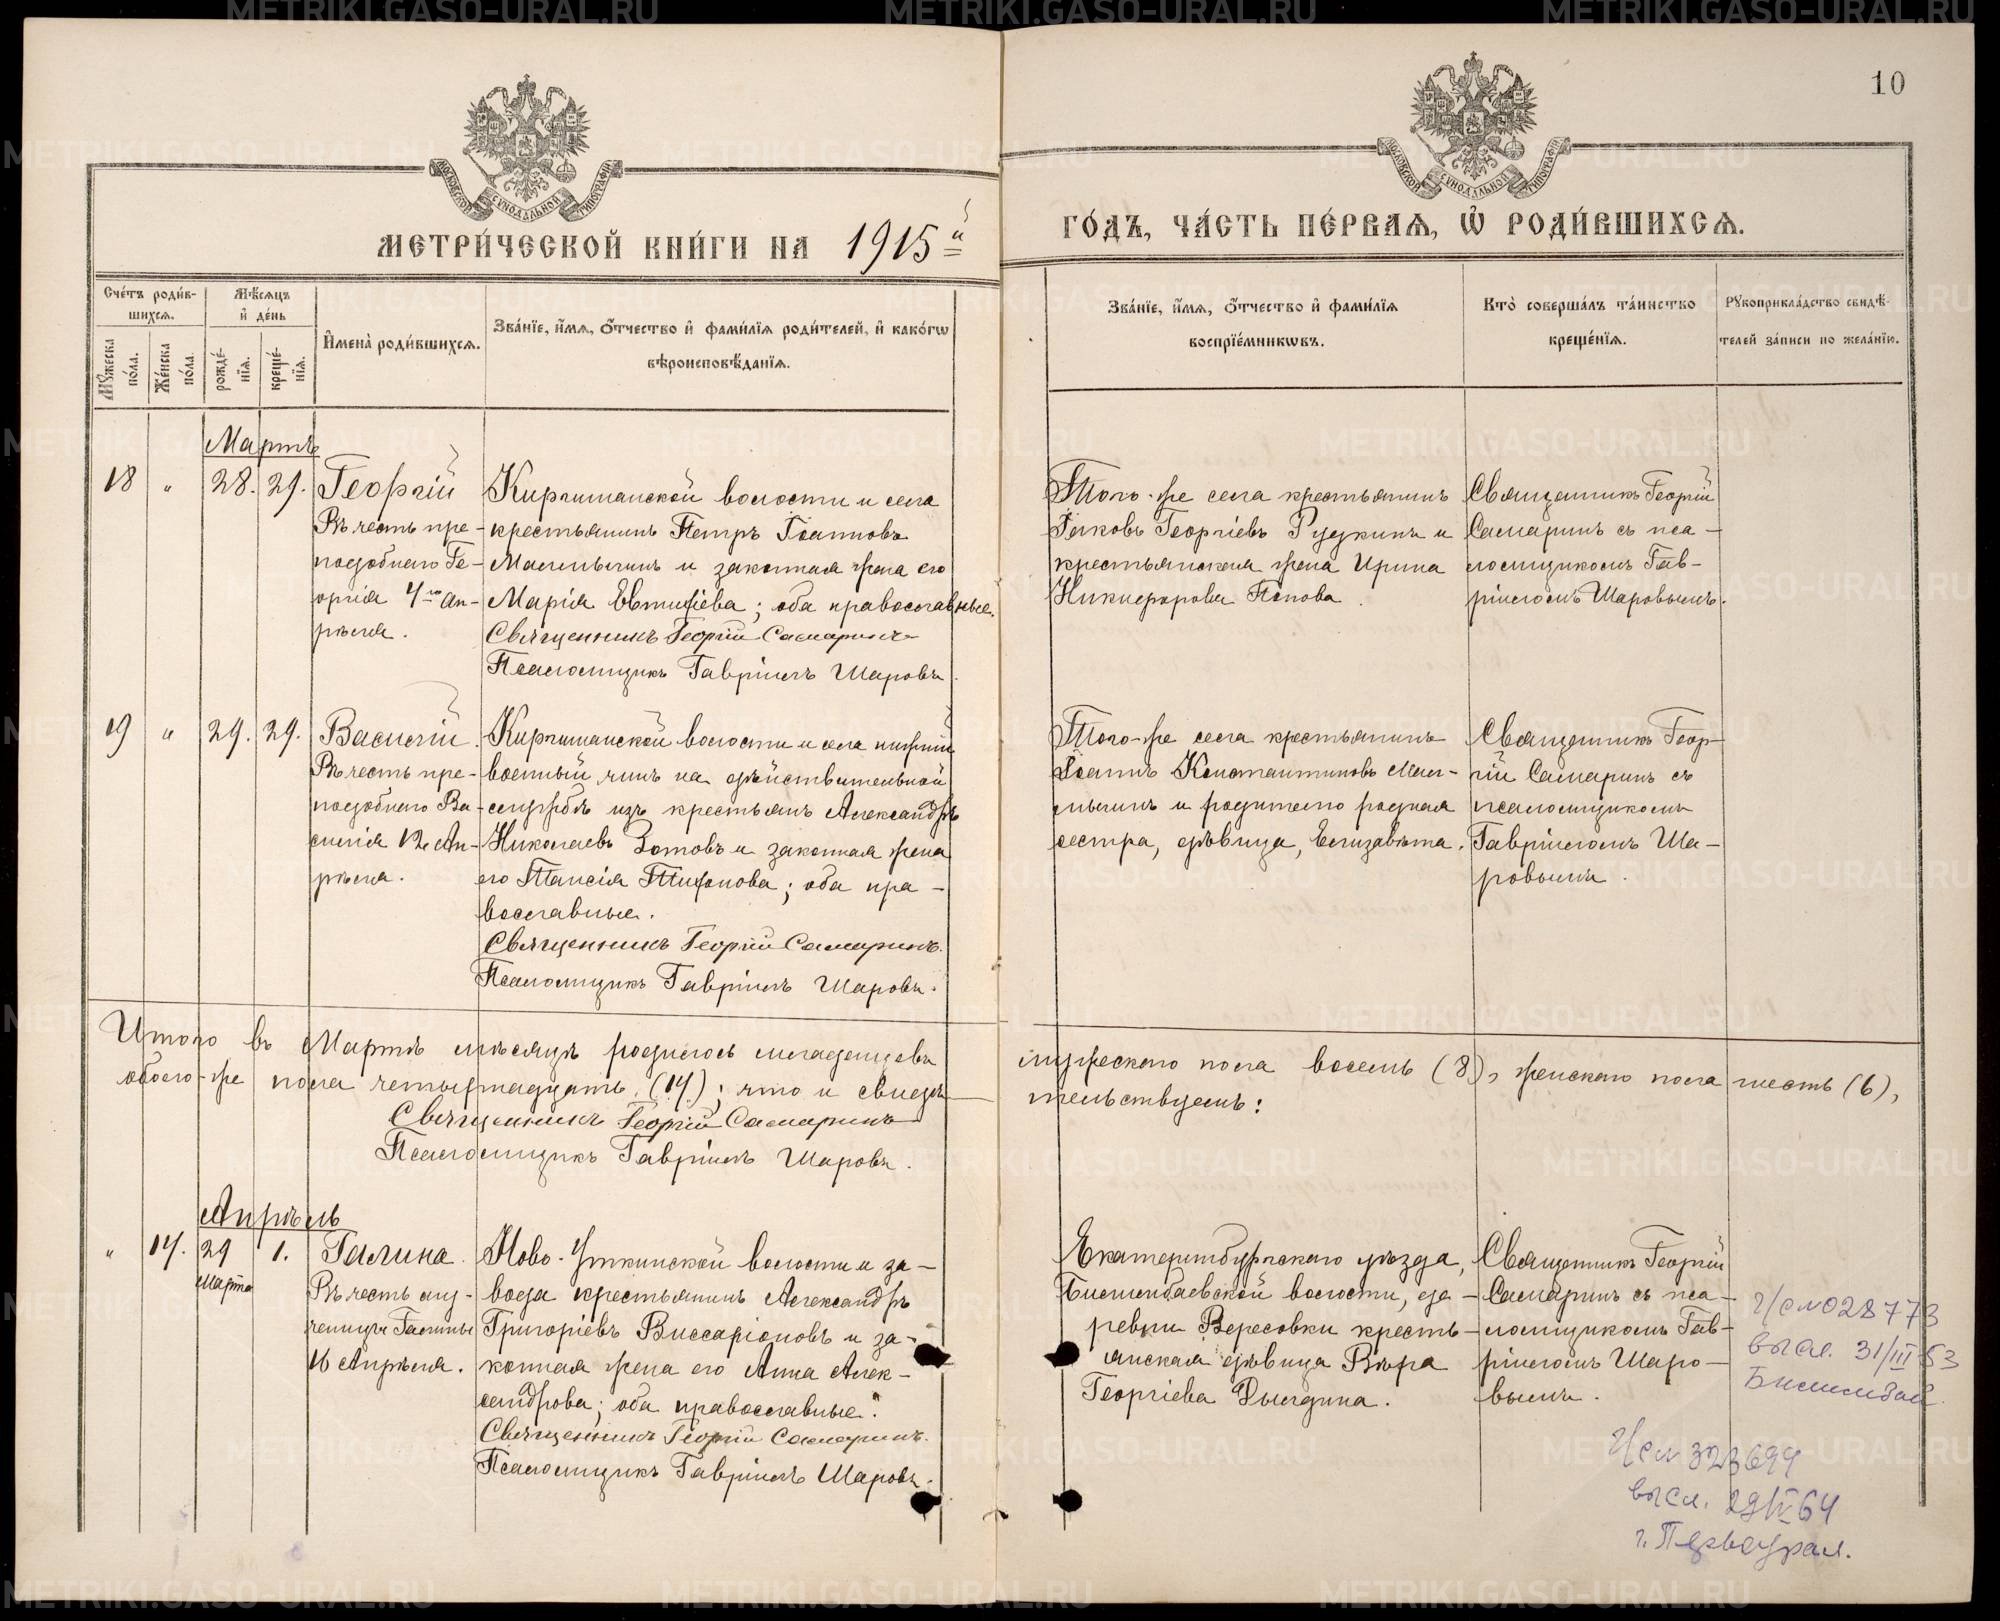 10
МОСКОВСКОЙ СѴНОДАЛЬНОЙ ТИПОГРАФІИ
МОСКОВСКОЙ СѴНОДАЛЬНОЙ ТИПОГРАФІИ
МЕТРИ́ЧЕСКОЙ КНИ́ГИ НА 1915й
ГО́ДЪ, ЧА́СТЬ ПЕ́РВАѦ, Ѡ҆ РОДИ́ВШИХСѦ.
Сче́тъ роди́в-
шихсѧ.
Мꙋ́жеска по́ла.
Же́нска по́ла.
Мѣ́сѧцъ
и҆ де́нь
рожде́-
нїѧ.
креще́-
нїѧ.
И҆мена̀ роди́вшихсѧ.
Зва́нїе, и҆́мѧ, ѻ҆́тчество и҆ фами́лїѧ роди́телей, и҆ како́гѡ
вѣроисповѣ́данїѧ.
Зва́нїе, и҆́мѧ, ѻ҆́тчество и҆ фами́лїѧ
воспрїе́мникѡвъ.
Кто̀ соверша́лъ та́инство
креще́нїѧ.
Рꙋкоприкла́дство свидѣ́-
телей за́писи по жела́нїю.
Мартъ
18 " 28. 29. Георгій
Въ честь пре-
подобнаго Ге-
оргія 4го Ап-
рѣля.
Киргишанской волости и села
крестьянинъ Петръ Іоанновъ
Маслыгинъ и законная жена его
Марія Евтихіева; оба православные.
Священникъ Георгій Самаринъ
Псаломщикъ Гавріилъ Шаровъ.
Того-же села крестьянинъ
Іаковъ Георгіевъ Рудкинъ и
крестьянская жена Ирина
Никифорова Попова.
Священникъ Георгій
Самаринъ съ пса-
ломщикомъ Гав-
ріиломъ Шаровымъ.
19 " 29. 29. Василій.
Въ честь пре-
подобнаго Ва-
силія 12 Ап-
рѣля.
Киргишанской волости и села нижній
военный чинъ на дѣйствительной
службѣ изъ крестьянъ Александръ
Николаевъ Зотовъ и законная жена
его Таисія Тихонова; оба пра-
вославные.
Священникъ Георгій Самаринъ.
Псаломщикъ Гавріилъ Шаровъ.
Того-же села крестьянинъ
Іоаннъ Константиновъ Мас-
лыгинъ и родителю родная
сестра, дѣвица, Елизавета.
Священникъ Геор-
гій Самаринъ съ
псаломщикомъ
Гавріиломъ Ша-
ровымъ.
Итого въ Мартѣ мѣсяцѣ родилось младенцевъ мужескаго пола восемь (8), женскаго пола шесть (6),
обоего-же пола четырнадцать (14); что и свидѣ-тельствуемъ:
Священникъ Георгій Самаринъ
Псаломщикъ Гавріилъ Шаровъ.
Апрѣль
" 14. 29 1. Галина.
Марта
Въ честь му-
ченицы Галины
16 Апрѣля.
Ново-Уткинской волости и за-
вода крестьянинъ Александръ
Григоріевъ Виссаріоновъ и за-
конная жена его Анна Алек-
сандрова; оба православные.
Священникъ Георгій Самаринъ.
Псаломщикъ Гавріилъ Шаровъ.
Екатеринбургскаго уѣзда,
Билимбаевской волости, де-
ревни Вересовки кресть-
янская дѣвица Вѣра
Георгіева Дылдина.
Священникъ Георгій
Самаринъ съ пса-
ломщикомъ Гав-
ріиломъ Шаро-
вымъ.
028773
высл. 31/III-53
Билимбай.
323699
высл. 29/IV 64
г. Первоурал.
METRIKI.GASO-URAL.RU